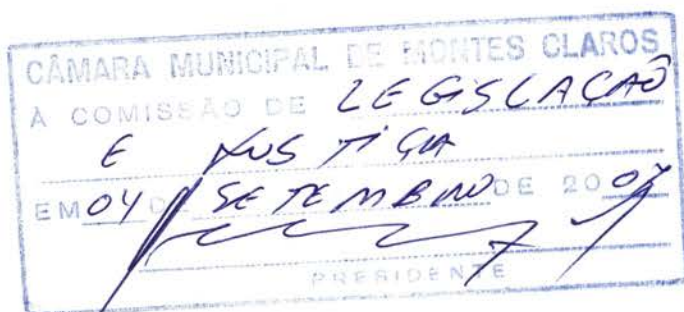 CÂMARA MUNICIPAL DE MONTES CLAROS
À COMISSÃO DE LEGISLAÇÃO
E JUSTIÇA
EM 04 DE SETEMBRO DE 2007
PRESIDENTE